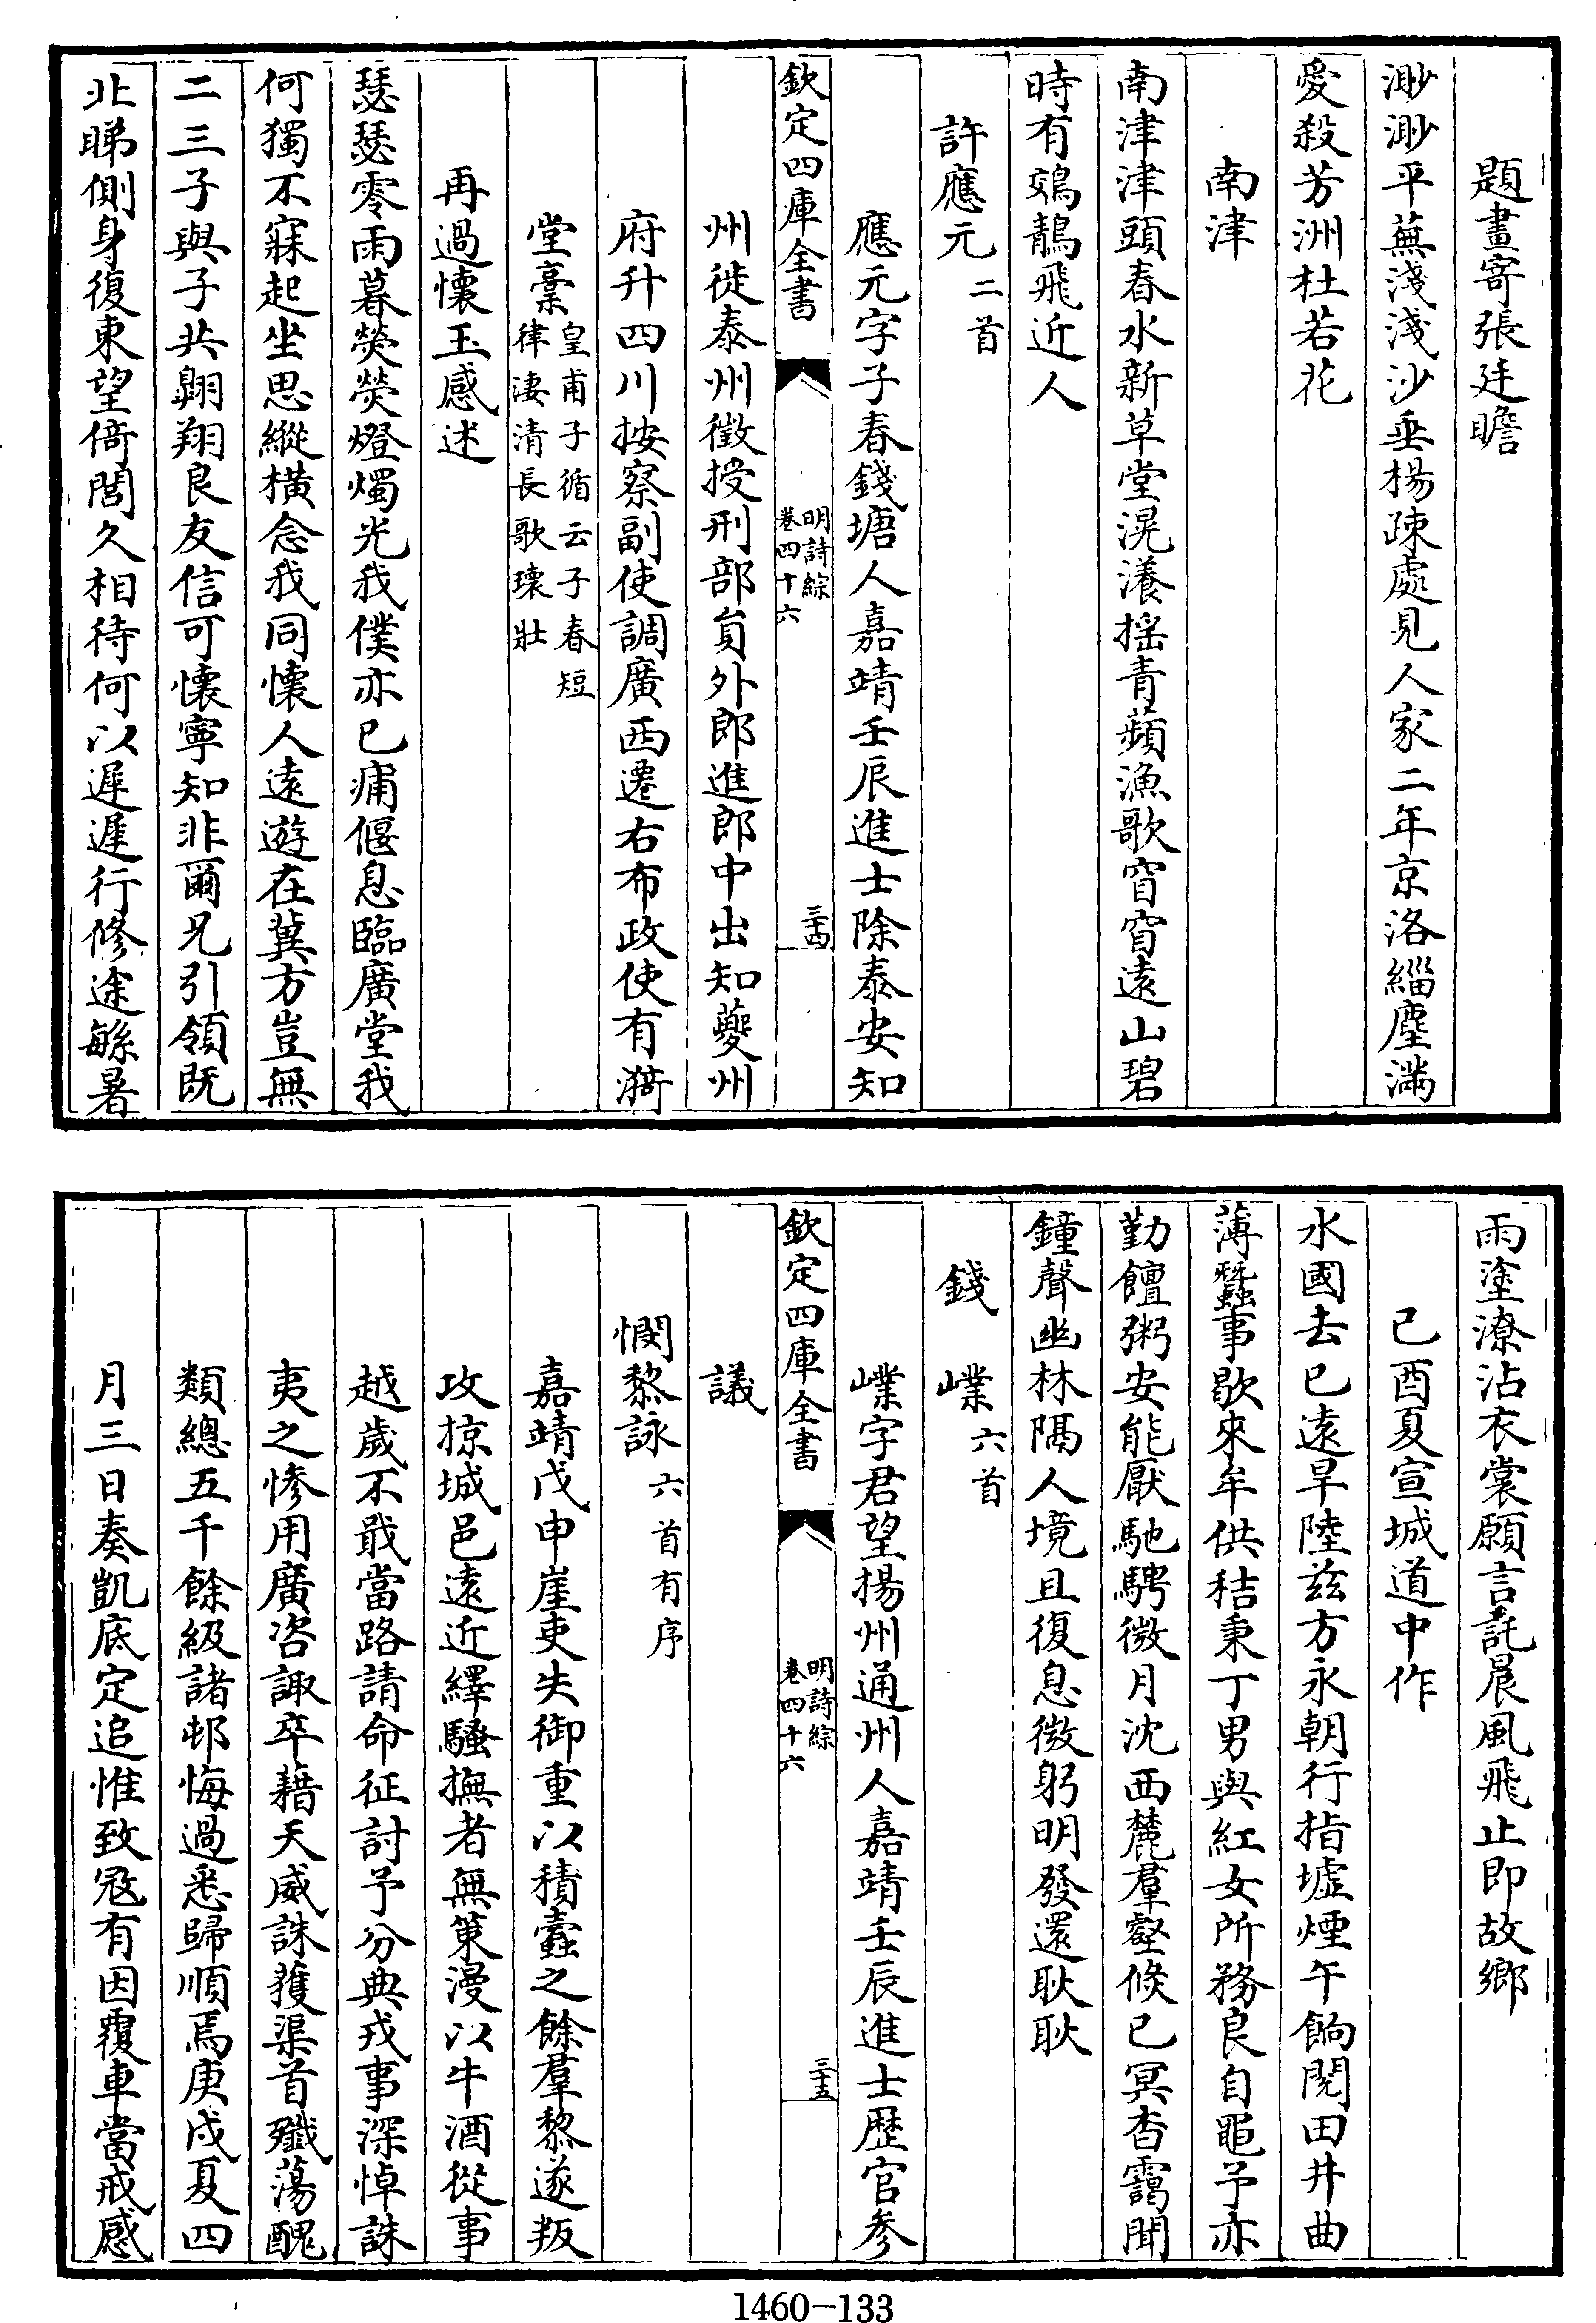 題畫寄張廷瞻
渺渺平蕪淺淺沙垂楊疎處見人家二年京洛緇塵滿
愛殺芳洲杜若花
南津
南津津頭春水新草堂滉瀁揺青蘋漁歌窅窅遠山碧
時有鵁鶄飛近人
許應元二首
應元字子春錢塘人嘉靖壬辰進士除泰安知
欽定四庫全書
明詩綜
卷四十六
三十四
州徙泰州徵授刑部員外郎進郎中出知夔州
府升四川按察副使調廣西遷右布政使有漪
堂稾
皇甫子循云子春短
律淒清長歌瓌壯
再過懷玉感述
瑟瑟零雨暮熒熒燈燭光我僕亦已痡偃息臨廣堂我
何獨不寐起坐思縱横念我同懷人遠遊在冀方豈無
二三子與子共翺翔良友信可懷寧知非爾兄引領既
北睇側身復東望倚閭久相待何以遲遲行修途緐暑
雨塗潦沾衣裳願言託晨風飛止即故鄉
己酉夏宣城道中作
水國去已遠旱陸兹方永朝行指墟煙午餉閱田井曲
薄蠶事歇來牟供秸秉丁男與紅女所務良自黽予亦
勤饘粥安能厭馳騁微月沈西麓羣壑倏已冥杳靄聞
鐘聲幽林隔人境且復息微躬明發還耿耿
錢嶫六首
嶫字君望揚州通州人嘉靖壬辰進士歷官參
欽定四庫全書
明詩綜
卷四十六
三十五
議
憫黎詠六首有序
嘉靖戊申崖吏失御重以積蠹之餘羣黎遂叛
攻掠城邑遠近繹騷撫者無策漫以牛酒從事
越歲不戢當路請命征討予分典戎事深悼誅
夷之慘用廣咨諏卒藉天威誅獲渠首殲蕩醜
類總五千餘級諸邨悔過悉歸順焉庚戌夏四
月三日奏凱底定追惟致寇有因覆車當戒感
1460-133